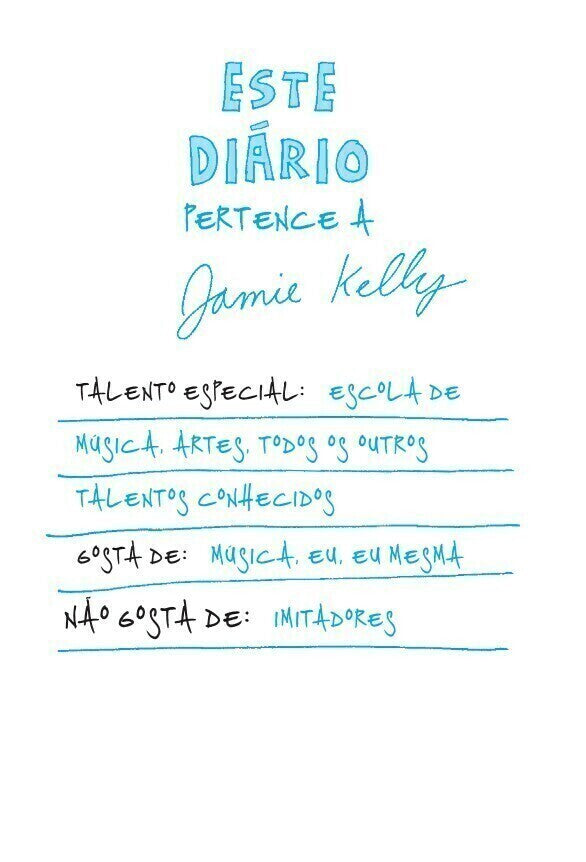 ESTE
DIÁRIO
PERTENCE A
Jamie Kelly
TALENTO ESPECIAL: ESCOLA DE
MÚSICA, ARTES, TODOS OS OUTROS
TALENTOS CONHECIDOS
GOSTA DE: MÚSICA, EU, EU MESMA
NÃO GOSTA DE: IMITADORES